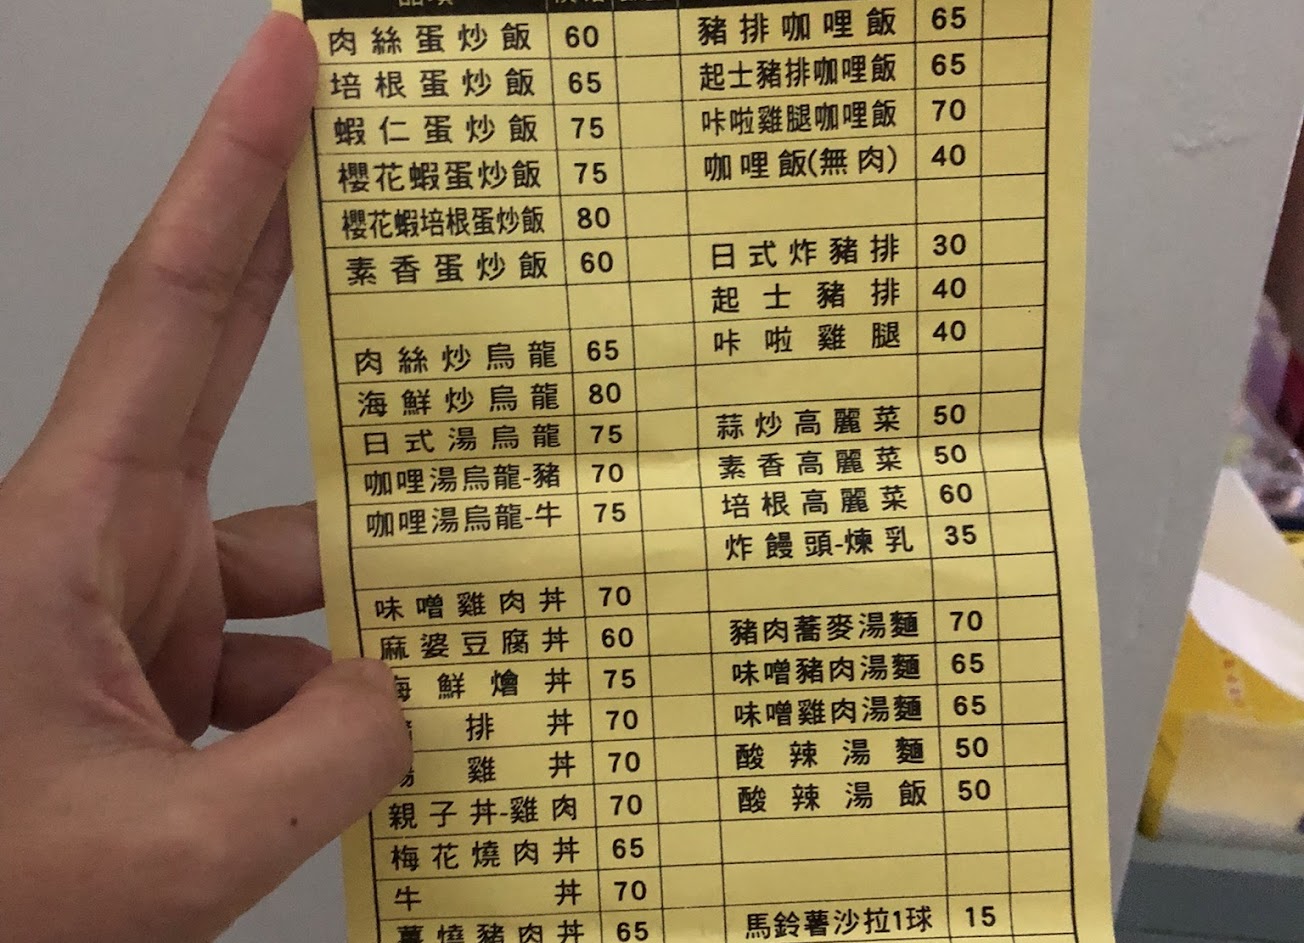 肉絲蛋炒飯 60
培根蛋炒飯 65
蝦仁蛋炒飯 75
櫻花蝦蛋炒飯 75
櫻花蝦培根蛋炒飯 80
素香蛋炒飯 60
肉絲炒烏龍 65
海鮮炒烏龍 80
日式湯烏龍 75
咖哩湯烏龍-豬 70
咖哩湯烏龍-牛 75
味噌雞肉丼 70
麻婆豆腐丼 60
海鮮燴丼 75
排丼 70
雞丼 70
親子丼-雞肉 70
梅花燒肉丼 65
牛丼 70
薑燒豬肉丼 65
豬排咖哩飯 65
起士豬排咖哩飯 65
咔啦雞腿咖哩飯 70
咖哩飯(無肉) 40
日式炸豬排 30
起士豬排 40
咔啦雞腿 40
蒜炒高麗菜 50
素香高麗菜 50
培根高麗菜 60
炸饅頭-煉乳 35
豬肉蕎麥湯麵 70
味噌豬肉湯麵 65
味噌雞肉湯麵 65
酸辣湯麵 50
酸辣湯飯 50
馬鈴薯沙拉1球 15